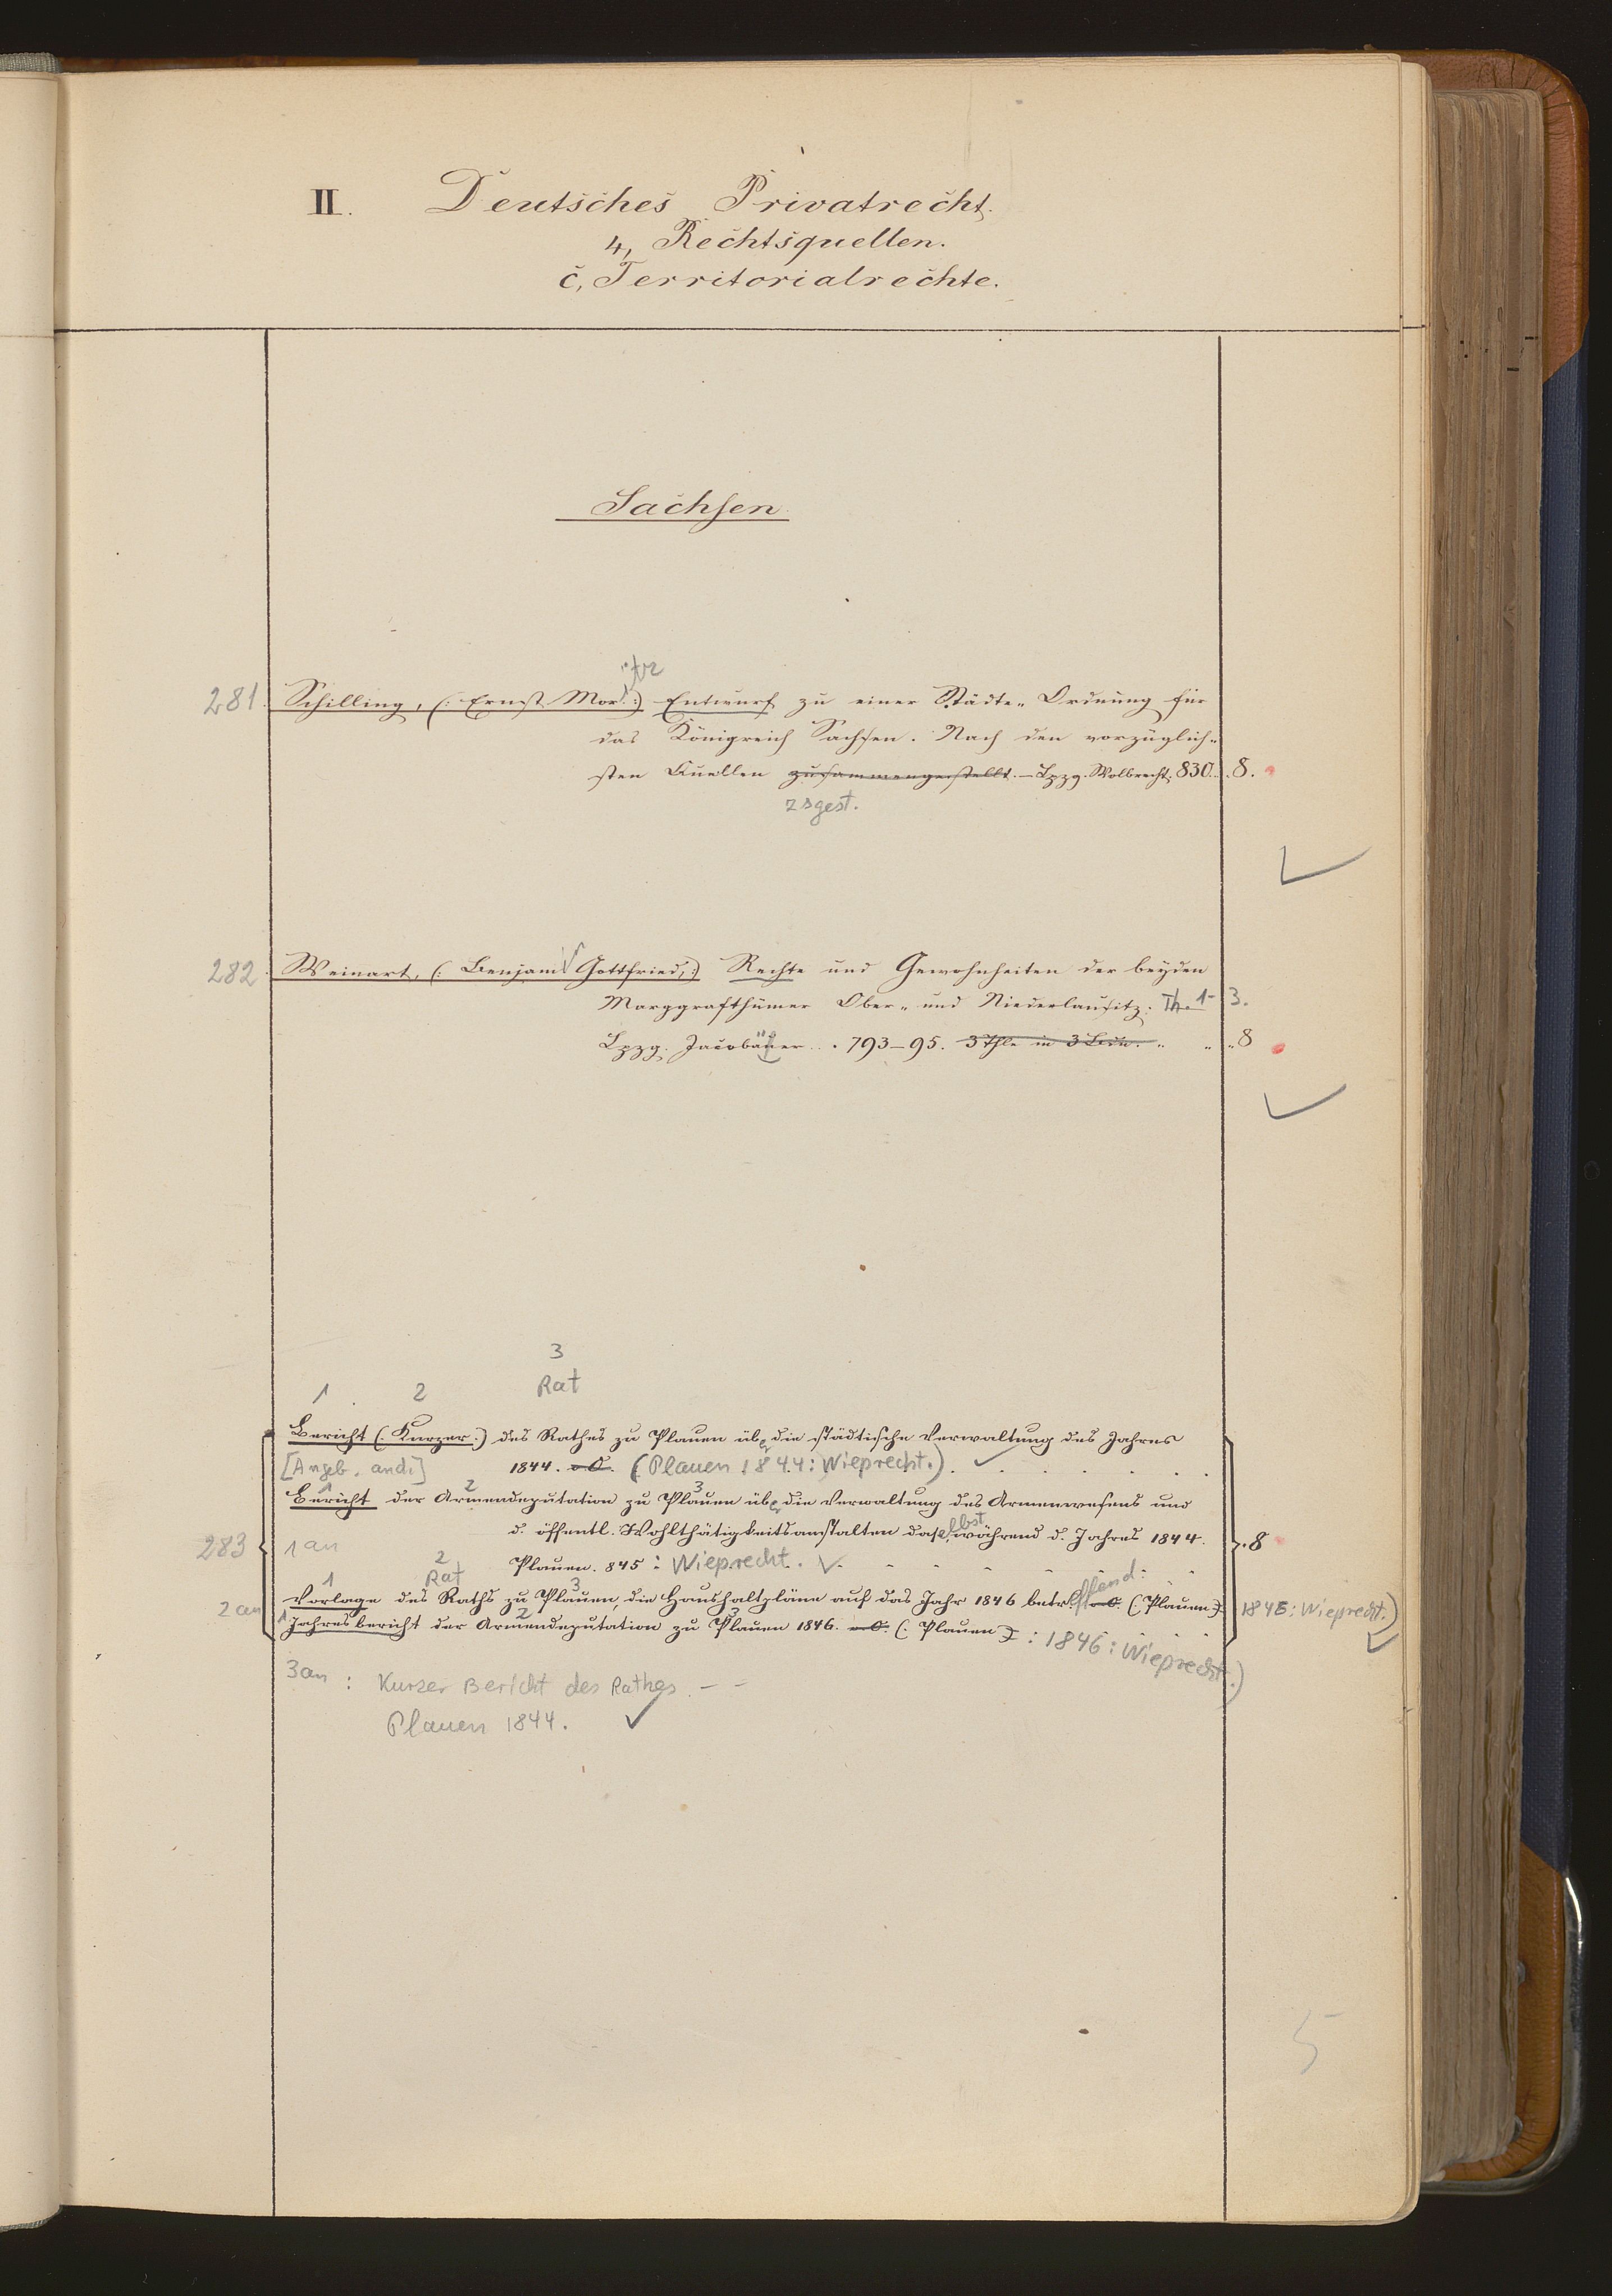 II. Deutsches Privatrecht.
4, Rechtsquellen.
c, Territorialrechte.
Sachsen
itz
281. Schilling, (: Ernst Mor. :) Entwurf zu einer Städte-Ordnung für
das Königreich Sachsen. Nach den vorzüglich-
sten Quellen zusammengestellt. – Lpzg. Wolbrecht, 830. 8.
zsgest.
282. Weinart, (: Benjam Gottfried, :) Rechte und Gewohnheiten der beyden
Marggrafthümer Ober- und Niederlausitz. Th. 1-3.
Lpzg. Jacobäer. 793–95. 3 Thle in 3 8
3
1 2 Rat
Bericht (: Kurzer :) des Rathes zu Plauen üb. die städtische Verwaltung des Jahres
[Angeb. and.] 1844. o. O. (Plauen 1844: Wieprecht.)
1 2 3
Bericht der Armendeputation zu Plauen üb. die Verwaltung des Armenwesens und
d. öffentl. Wohlthätigkeitsanstalten daselbst während d. Jahres 1844.
283 1 an 8
Plauen. 845: Wieprecht.
1 2 Rat 3
2 an Vorlage des Raths zu Plauen, die Haushaltpläne auf das Jahr 1846 betreffend: o. O. (: Plauen :) 1845: Wieprecht.)
1 2 3
Jahresbericht der Armendeputation zu Plauen 1846. o. O. (: Plauen : 1846: Wieprecht.)
3 an: Kurzer Bericht des Rathes. – –
Plauen 1844.
5